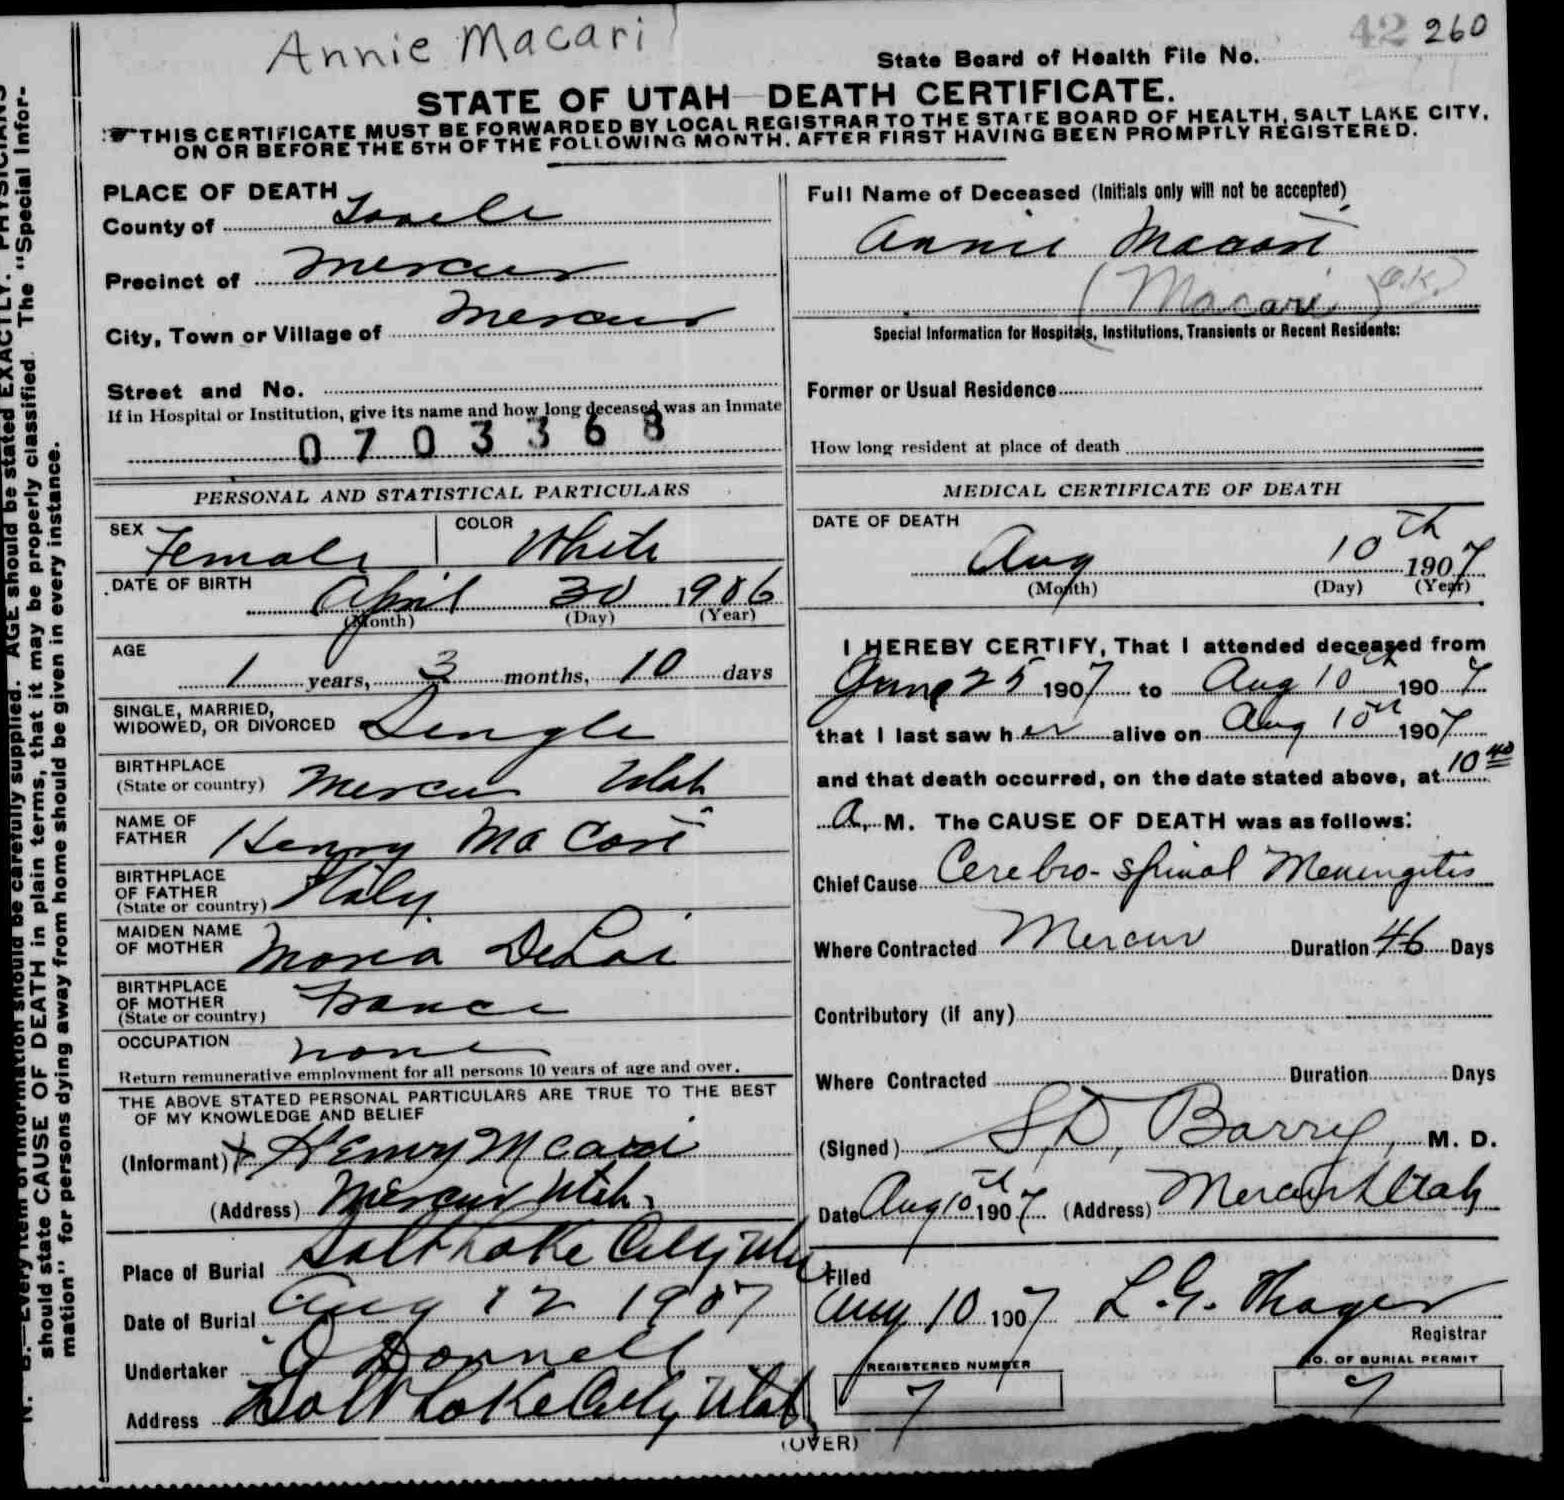 Annie Macari
42 260
State Board of Health File No.
STATE OF UTAH DEATH CERTIFICATE.
THIS CERTIFICATE MUST BE FORWARDED BY LOCAL REGISTRAR TO THE STATE BOARD OF HEALTH, SALT LAKE CITY,
ON OR BEFORE THE 5TH OF THE FOLLOWING MONTH. AFTER FIRST HAVING BEEN PROMPTLY REGISTERED.
PLACE OF DEATH
County of Tooele
Precinct of Mercur
City, Town or Village of Mercur
Street and No.
If in Hospital or Institution, give its name and how long deceased was an inmate
0703368
Full Name of Deceased (Initials only will not be accepted)
Annie Macari
(Macari) O.K.
Special Information for Hospitals, Institutions, Transients or Recent Residents:
Former or Usual Residence
How long resident at place of death
PERSONAL AND STATISTICAL PARTICULARS
SEX Female COLOR White
DATE OF BIRTH
April 30 1906
(Month) (Day) (Year)
AGE
1 years, 3 months, 10 days
SINGLE, MARRIED,
WIDOWED, OR DIVORCED Single
BIRTHPLACE
(State or country) Mercur Utah
NAME OF
FATHER Henry Ma Cari
BIRTHPLACE
OF FATHER
(State or country) Italy
MAIDEN NAME
OF MOTHER Maria DeLai
BIRTHPLACE
OF MOTHER
(State or country) France
OCCUPATION none
Return remunerative employment for all persons 10 years of age and over.
THE ABOVE STATED PERSONAL PARTICULARS ARE TRUE TO THE BEST
OF MY KNOWLEDGE AND BELIEF
(Informant) Henry Mcari
(Address) Mercur Utah
Place of Burial Salt Lake City Utah
Date of Burial Aug 12 1907
Undertaker O Donnell
Address Salt Lake City Utah
MEDICAL CERTIFICATE OF DEATH
DATE OF DEATH
Aug 10th 1907
(Month) (Day) (Year)
I HEREBY CERTIFY, That I attended deceased from
June 25 1907 to Aug 10th 1907
that I last saw her alive on Aug 10th 1907
and that death occurred, on the date stated above, at 10 40
A. M. The CAUSE OF DEATH was as follows:
Chief Cause Cerebro-spinal Meningitis
Where Contracted Mercur Duration 46 Days
Contributory (if any)
Where Contracted Duration Days
(Signed) S. D. Barry, M. D.
Date Aug 10th 1907 (Address) Mercur Utah
Filed
Aug 10 1907 L. G. Thayer
Registrar
REGISTERED NUMBER
7
NO. OF BURIAL PERMIT
7
(OVER)
N. B.—Every item of information should be carefully supplied. AGE should be stated EXACTLY. PHYSICIANS
should state CAUSE OF DEATH in plain terms, that it may be properly classified. The "Special Infor-
mation" for persons dying away from home should be given in every instance.